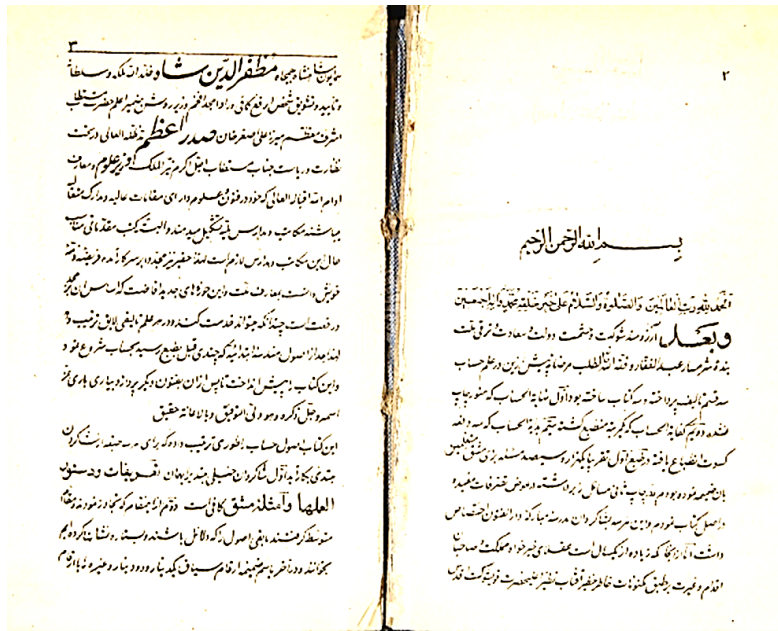 ۲
بسم الله الرحمن الرحیم
الحمد لله رب العالمین والصلوة والسلام علی خیر خلقه محمد و آله اجمعین
وبعد آرزومند شوکت و حشمت دولت و سعادت و ترقی ملت
بنده شرمسار عبدالغفار وفقه الله لما یطلب مرضاته پیش ازین در علم حساب
سه قسم تألیف پرداخته و سه کتاب ساخته بود اول نهایة الحساب که هنوز چاپ
نشده دویم کفایة الحساب که مکرر منطبع گشته سیم بدایة الحساب که سه دفعه
کسوت انطباع یافته در طبع اول تقریبا یکهزار و سیصد مسئله برای مشق و تطبیق
بآن ضمیمه نموده بودم در چاپ ثانی مسائل را برداشته در عوض تصرفات مفیده
در اصل کتاب نمودم و این مدرسه بشاگردان مدرسه مبارکه دارالفنون اختصاص
داشت اما از آنجا که زیاده از یکسال است عقلای خیرخواه مملکت و صاحبان
اقدام و غیرت بر طبق مکنونات خاطر آفتاب نظیر اعلیحضرت قوی شوکت اقدس
۳
همایون شاهنشاه جمجاه مظفرالدین شاه خلد الله ملکه و سلطانه
و تأیید و تشویق شخص ارفع کافی و راد امجد افخم وزیر روشن ضمیر اعلم حضرت مستطاب
اشرف معظم میرزا علی اصغر خان صدر اعظم مد ظله العالی در تحت
نظارت و ریاست جناب مستطاب اجل اکرم نیر الملک وزیر علوم و معارف
ادام الله اقباله العالی که خود در فنون و علوم دارای مقامات عالیه و مدارک متعالیه
میباشند مکاتب و مدارس ملیه تشکیل میدهند و البته کتب مقدماتی مناسب
حال این مکاتب و مدارس لازم است لهذا حقیر نیز مجددا بر سر کار آمده فریضه ذمه
خویش دانست بمعارف ملت و این حوزه‌های جدید افاضت که اساس آن محکم
و رفعت است چندانکه میتواند خدمت کند و در هر علم تألیفی لایق ترتیب دهد
لهذا بعد از اصول هندسه ابتدائیه که چندی قبل بطبع رسید بحساب شروع نمود
و این کتاب را پیش انداخت تا پس از آن بفنون دیگر پردازد بیاری باری عز
اسمه و جل ذکره و هو ولی التوفیق و بالاعانة حقیق
این کتاب اصول حساب را طوری ترتیب داده که برای هر سه طبقه از شاگردان
مبتدی بکار آید اول شاگردان خیلی مبتدی بایشان تعریفات و دستور
العملها و امثله مشق کافی است دویم از این مقام که تجاوز نمودند و بمقام
متوسط گرفتند مابقی اصول را که دلائل باشند و بستاره نشان کرده‌ایم
بخوانند و در آخر باسم ضمیمه ارقام سیاق یکدینار و دو دینار و غیره را با ارقام